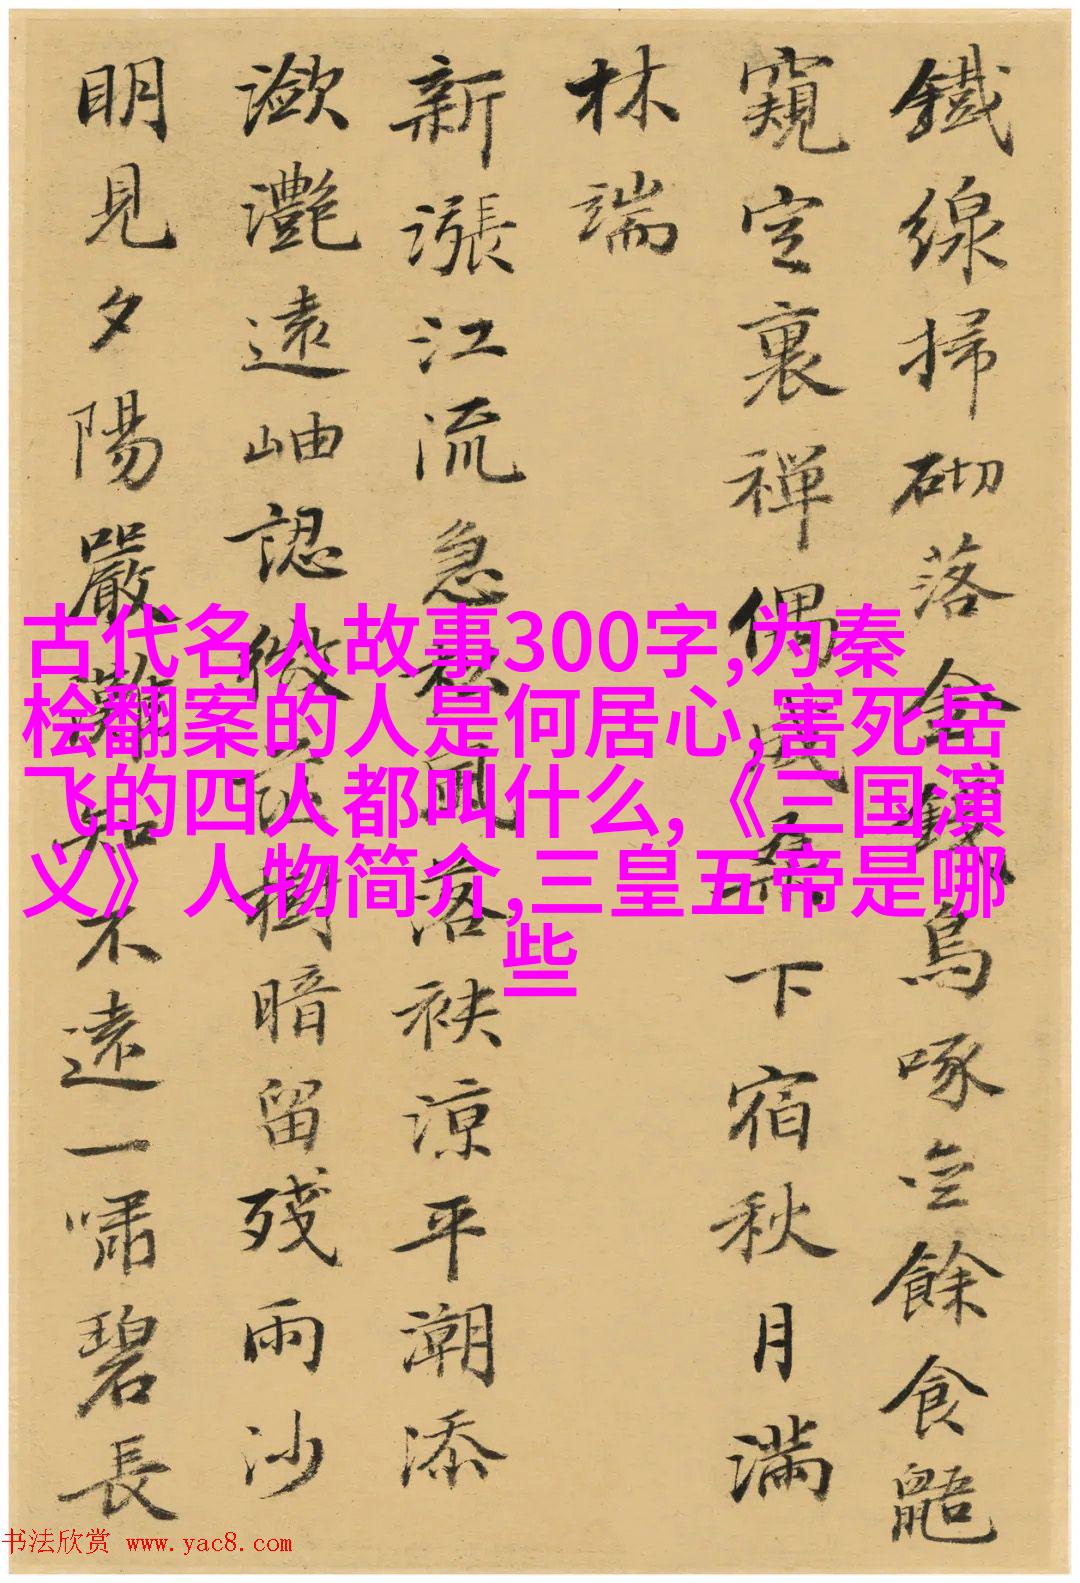 鐵線掃砌落金錢烏啄餘食鼯
窺空裏禪偶成桑下宿秋月滿
林端
新漲江流急秋風落袂涼平潮添
瀲灩遠岫認微茫樹暗留殘雨沙
明見夕陽嚴灘知不遠一嘯碧長
古代名人故事300字,为秦
桧翻案的人是何居心,害死岳
飞的四人都叫什么,《三国演
义》人物简介,三皇五帝是哪
些
书法欣赏 www.yac8.com